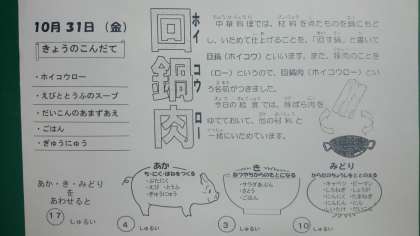 10月31日（金）
きょうのこんだて
・ホイコウロー
・えびととうふのスープ
・だいこんのあまずあえ
・ごはん
・ぎゅうにゅう
回鍋肉
ホイコウロー
中華料理では、材料を
いためて仕上げることを、「回す鍋」と書いて
回鍋（ホイコウ）といいます。また、豚肉のことを
（ロー）というので、回鍋肉（ホイコウロー）とい
う名前がつきました。
今日の給食では、豚ばら肉を
ゆでておいて、他の材料と
一緒にいためています。
あか・き・みどり
を
あわせると
17 しゅるい
あか
ち・にく・ほねをつくる
・ぶたにく
・えび ・とうふ
・ぎゅうにゅう
4 しゅるい
き
・サラダあぶら
・さとう
・ごはん
3 しゅるい
みどり
・キャベツ ・ピーマン
・たけのこ ・しょうが
・にんじん ・ねぎ
・にんにく
・しいたけ ・だいこん
10 しゅるい